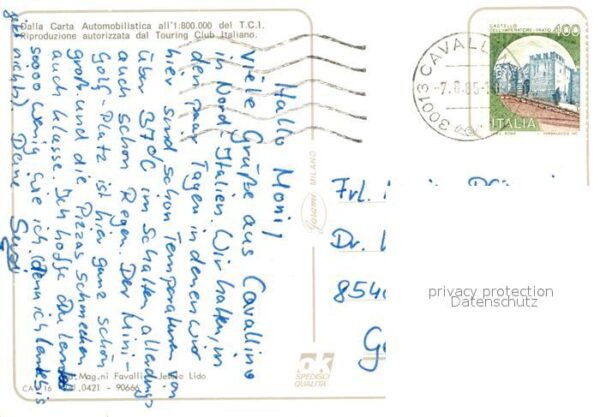 Dalla Carta Automobilistica all'1:800.000 del T.C.I.
Riproduzione autorizzata dal Touring Club Italiano.
Hallo Moni!
Viele Grüße aus Cavallino
in Nord Italien. Wir hatten, in
den paar Tagen in denen wir
hier sind schon Temperaturen von
über 37°C im Schatten, allerdings
auch schon Regen. Der Mini-
Golf-Platz ist hier ganz schön
groß und die Pizzas schmecken
auch klasse. Ich hoffe Du
soooo wenig wie ich (denn ich
gar nichts). Deine Susi
Mag.ni Favalli Jesolo Lido
0421 - 90666
Gesami MILANO
ok
SPEDISCI
QUALITÀ
30013 CAVALL
-7.8.85
CASTELLO
DELL'IMPERATORE-PRATO
400
ITALIA
Frl.
Dr.
854
G
privacy protection
Datenschutz